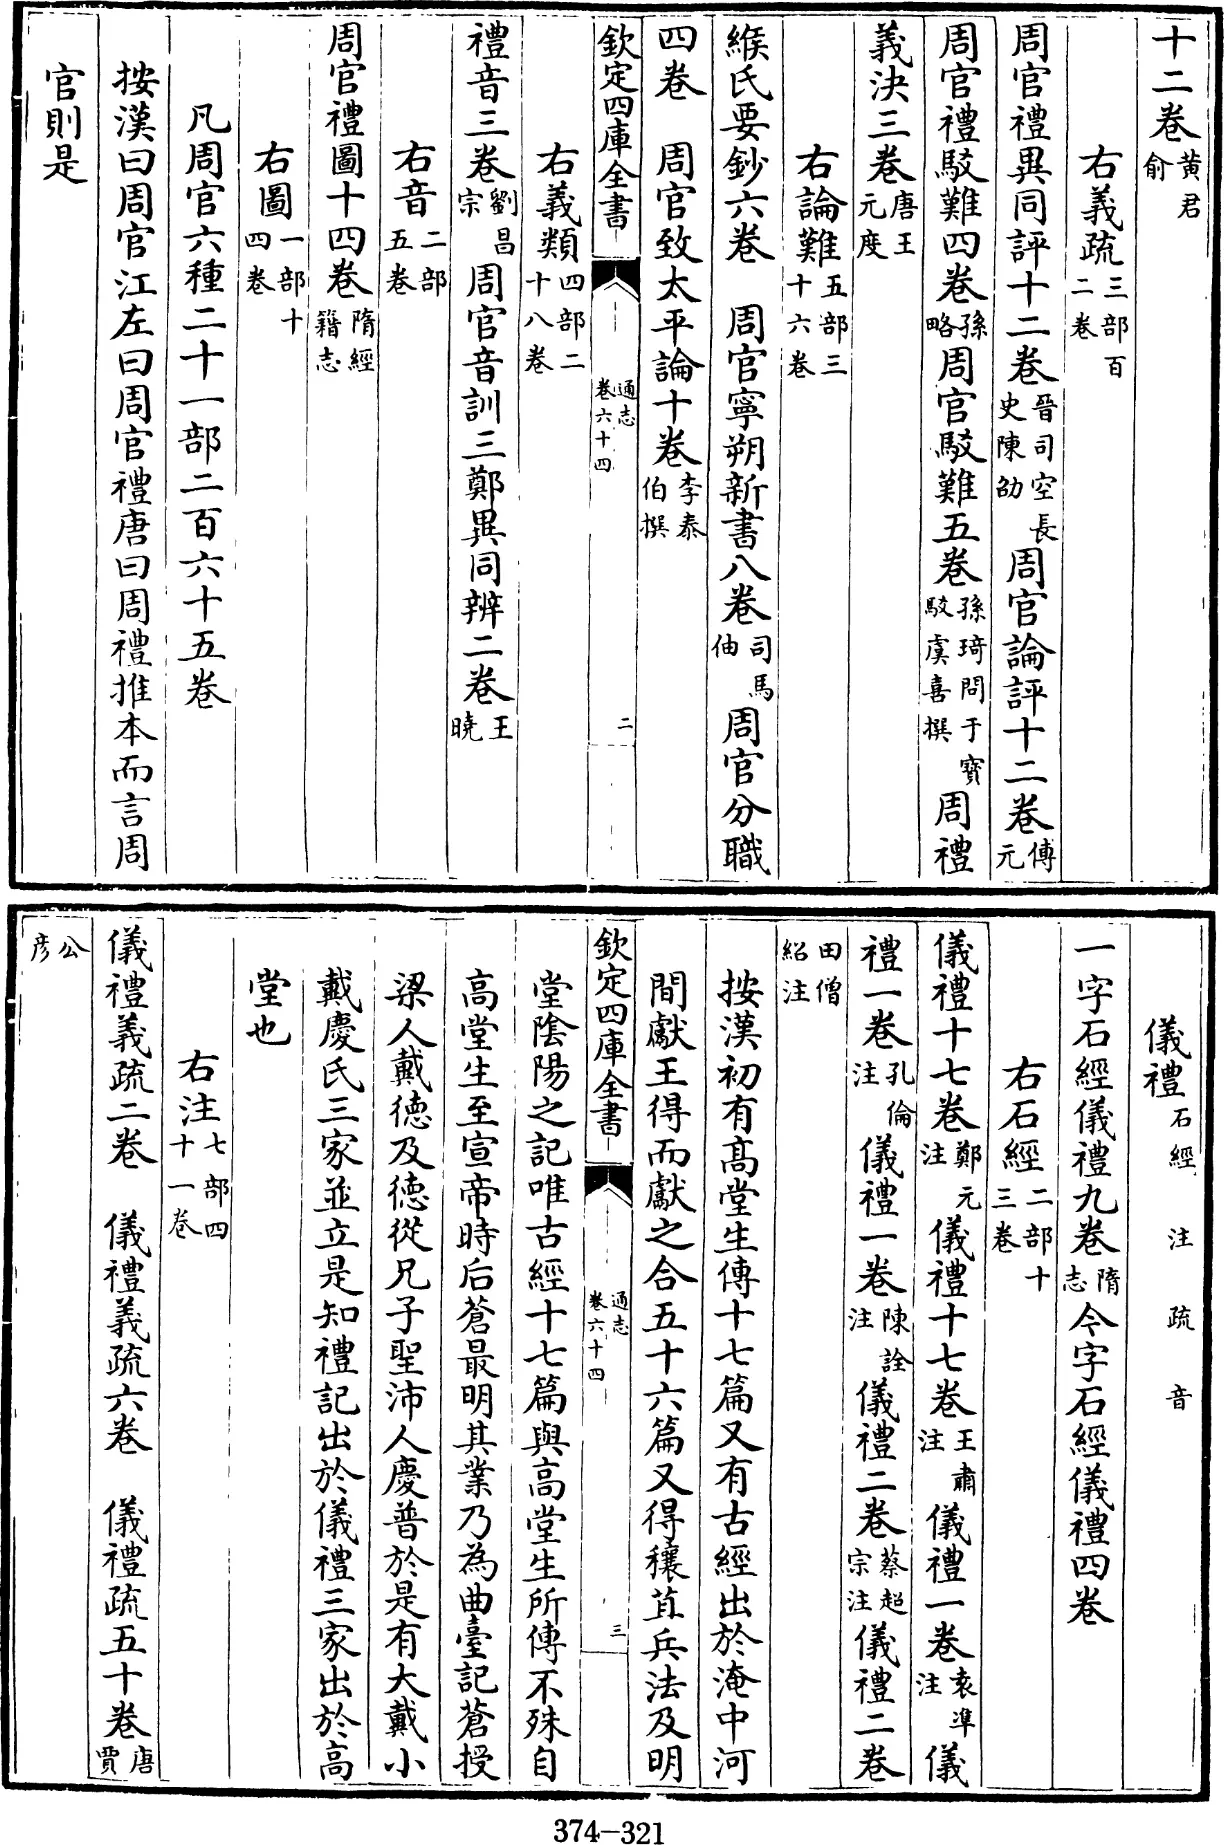 十二卷黃君俞
右義疏三部百二卷
周官禮異同評十二卷晉司空長史陳劭周官論評十二卷傅元
周官禮駁難四卷孫略周官駁難五卷孫琦問于寶駁虞喜撰周禮
義決三卷唐王元度
右論難五部三十六卷
緱氏要鈔六卷 周官寧朔新書八卷司馬伷周官分職
四卷 周官致太平論十卷李泰伯撰
欽定四庫全書 通志卷六十四 二
右義類四部二十八卷
禮音三卷劉昌宗周官音訓三鄭異同辨二卷王曉
右音二部五卷
周官禮圖十四卷隋經籍志
右圖一部十四卷
凡周官六種二十一部二百六十五卷
按漢曰周官江左曰周官禮唐曰周禮推本而言周
官則是
儀禮石經 注 疏 音
一字石經儀禮九卷隋志今字石經儀禮四卷
右石經二部十三卷
儀禮十七卷鄭元注儀禮十七卷王肅注儀禮一卷袁準注儀
禮一卷孔倫注儀禮一卷陳詮注儀禮二卷蔡超宗注儀禮二卷
田僧紹注
按漢初有髙堂生傳十七篇又有古經出於淹中河
間獻王得而獻之合五十六篇又得穰苴兵法及明
欽定四庫全書 通志卷六十四 三
堂陰陽之記唯古經十七篇與高堂生所傳不殊自
高堂生至宣帝時后蒼最明其業乃為曲臺記蒼授
梁人戴德及德從兄子聖沛人慶普於是有大戴小
戴慶氏三家並立是知禮記出於儀禮三家出於高
堂也
右注七部四十一卷
儀禮義疏二卷 儀禮義疏六卷 儀禮疏五十卷唐賈
公彥
374-321